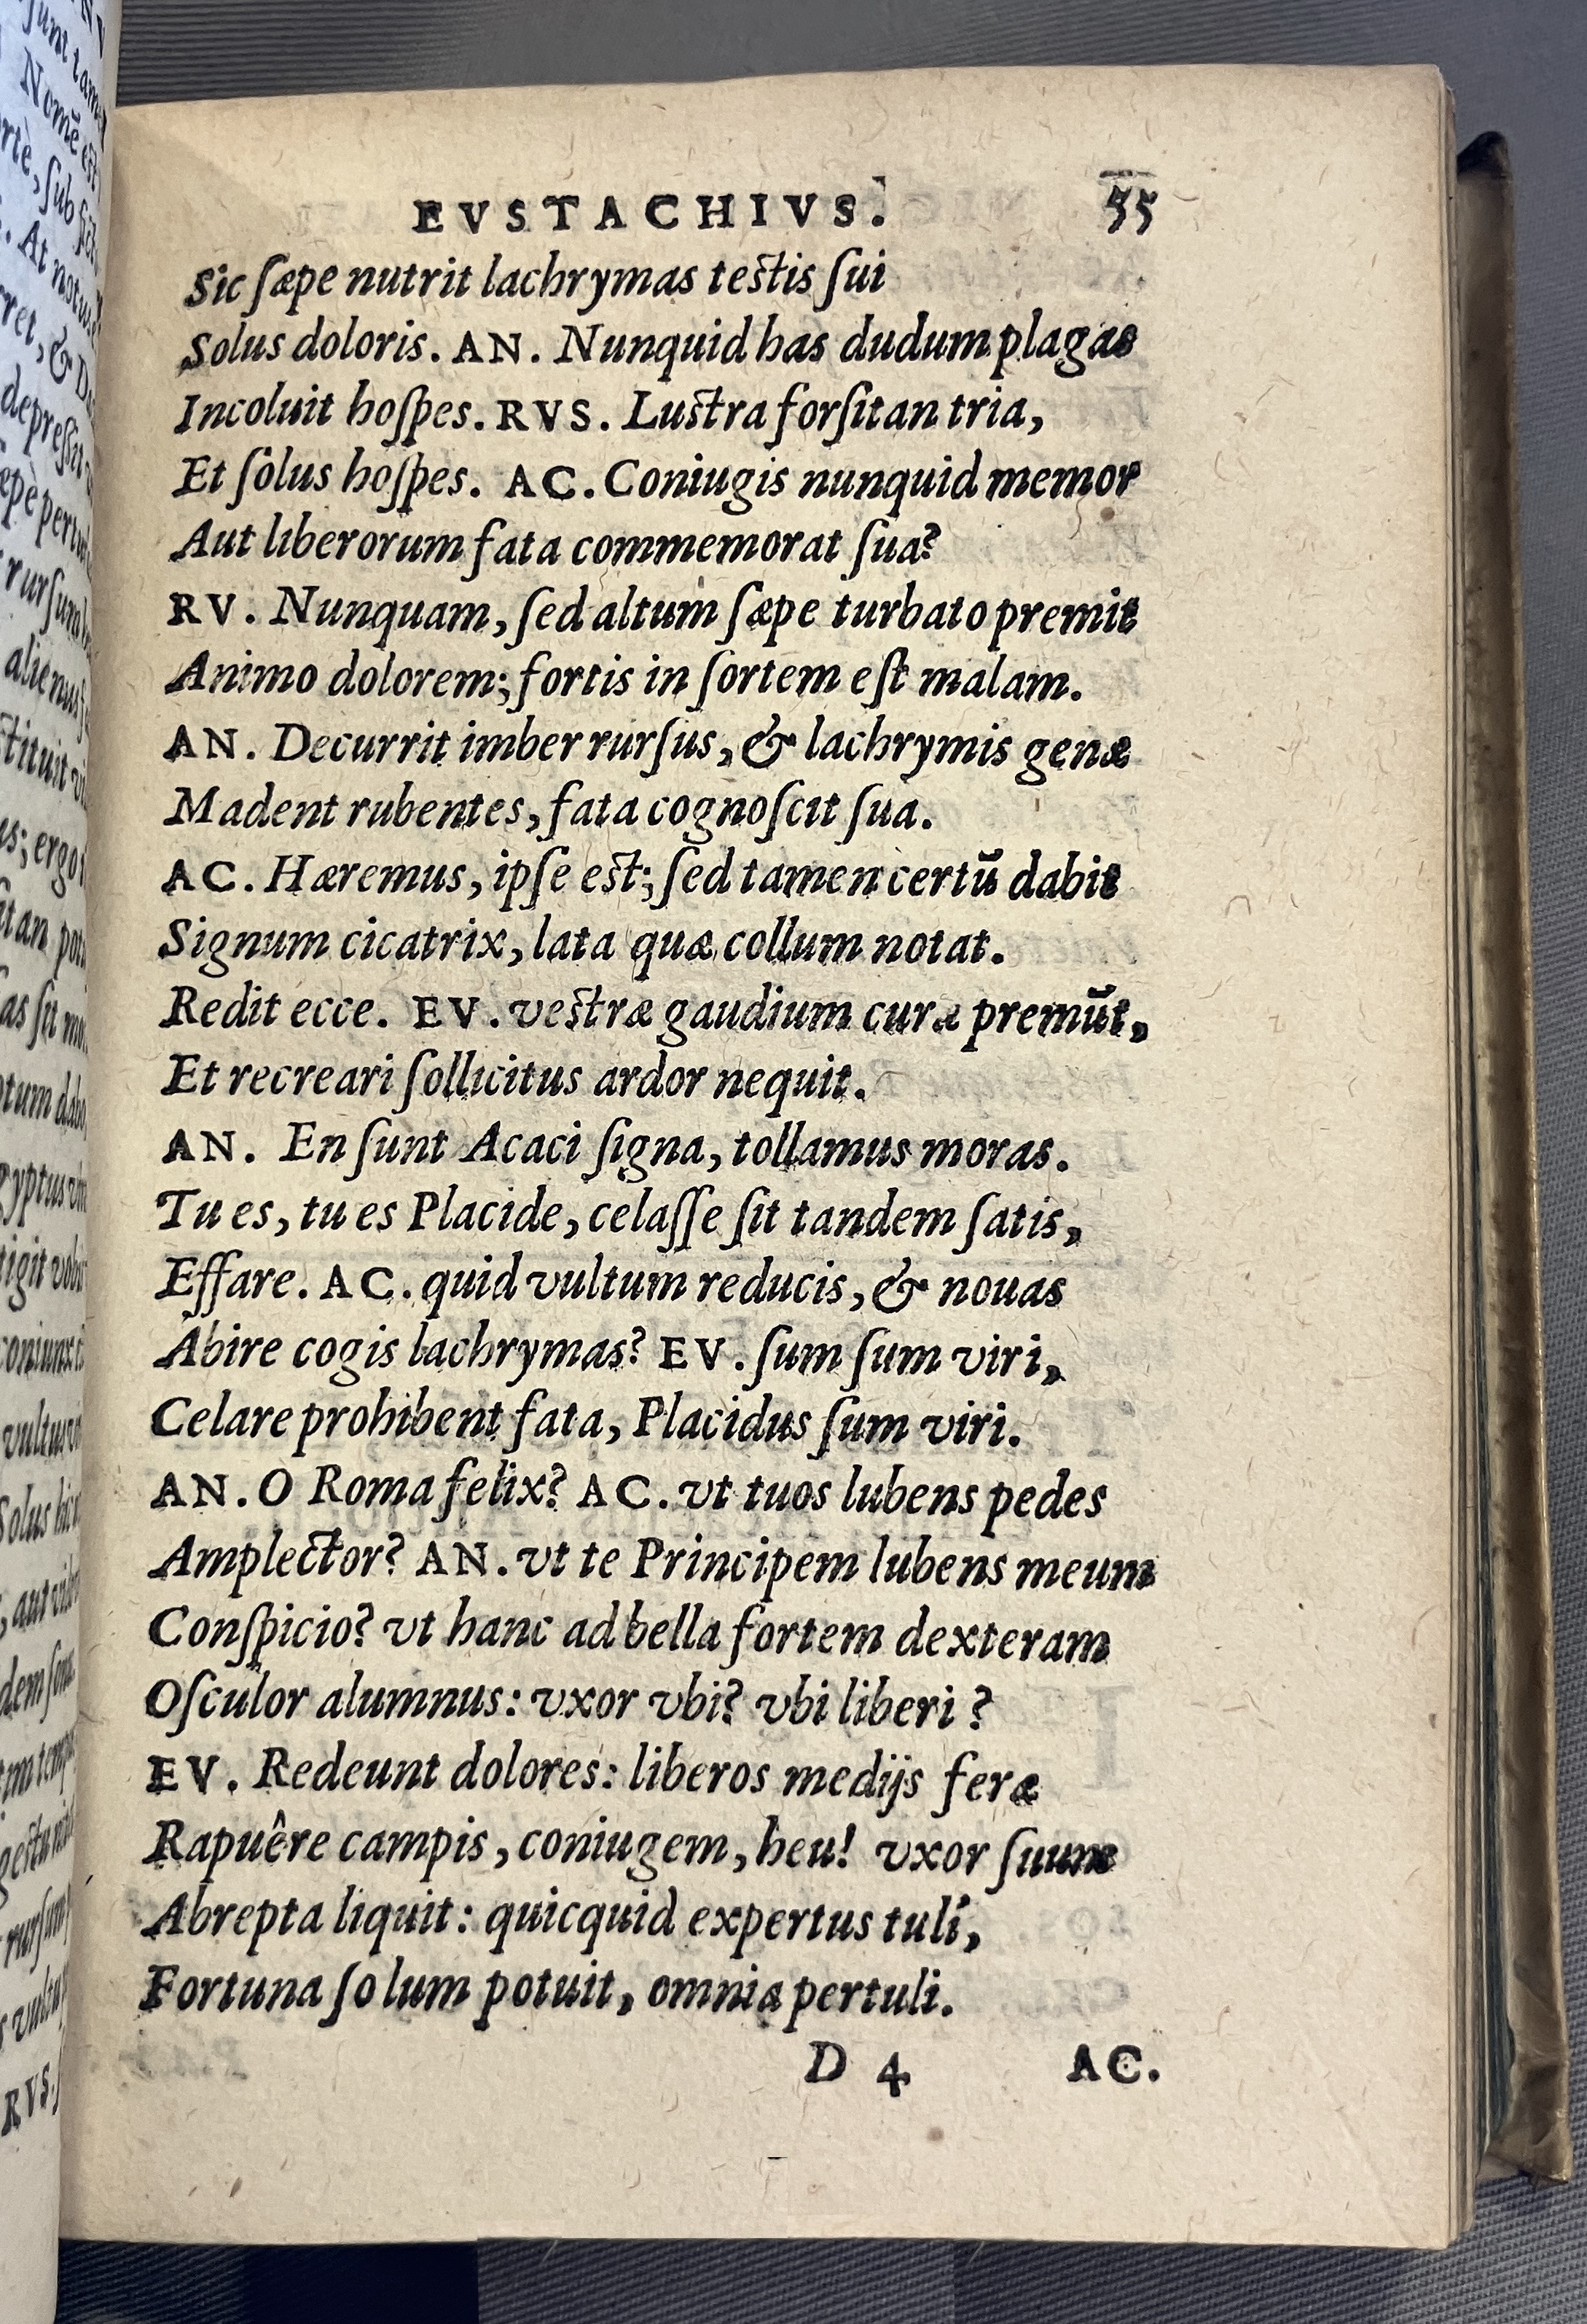 EVSTACHIVS. 55
Sic ſæpe nutrit lachrymas teſtis ſui
Solus doloris. AN. Nunquid has dudum plagas
Incoluit hoſpes. RVS. Luſtra forſitan tria,
Et ſolus hoſpes. AC. Coniugis nunquid memor
Aut liberorum fata commemorat ſua?
RV. Nunquam, ſed altum ſæpe turbato premit
Animo dolorem; fortis in ſortem eſt malam.
AN. Decurrit imber rurſus, & lachrymis genæ
Madent rubentes, fata cognoſcit ſua.
AC. Hæremus, ipſe eſt; ſed tamen certū dabit
Signum cicatrix, lata quæ collum notat.
Redit ecce. EV. veſtræ gaudium curæ premūt,
Et recreari ſollicitus ardor nequit.
AN. En ſunt Acaci ſigna, tollamus moras.
Tu es, tu es Placide, celaſſe ſit tandem ſatis,
Effare. AC. quid vultum reducis, & nouas
Abire cogis lachrymas? EV. ſum ſum viri,
Celare prohibent fata, Placidus ſum viri.
AN. O Roma felix? AC. vt tuos lubens pedes
Amplector? AN. vt te Principem lubens meum
Conſpicio? vt hanc ad bella fortem dexteram
Oſculor alumnus: vxor vbi? vbi liberi?
EV. Redeunt dolores: liberos medijs feræ
Rapuêre campis, coniugem, heu! vxor ſuum
Abrepta liquit: quicquid expertus tuli,
Fortuna ſolum potuit, omnia pertuli.
D 4 AC.